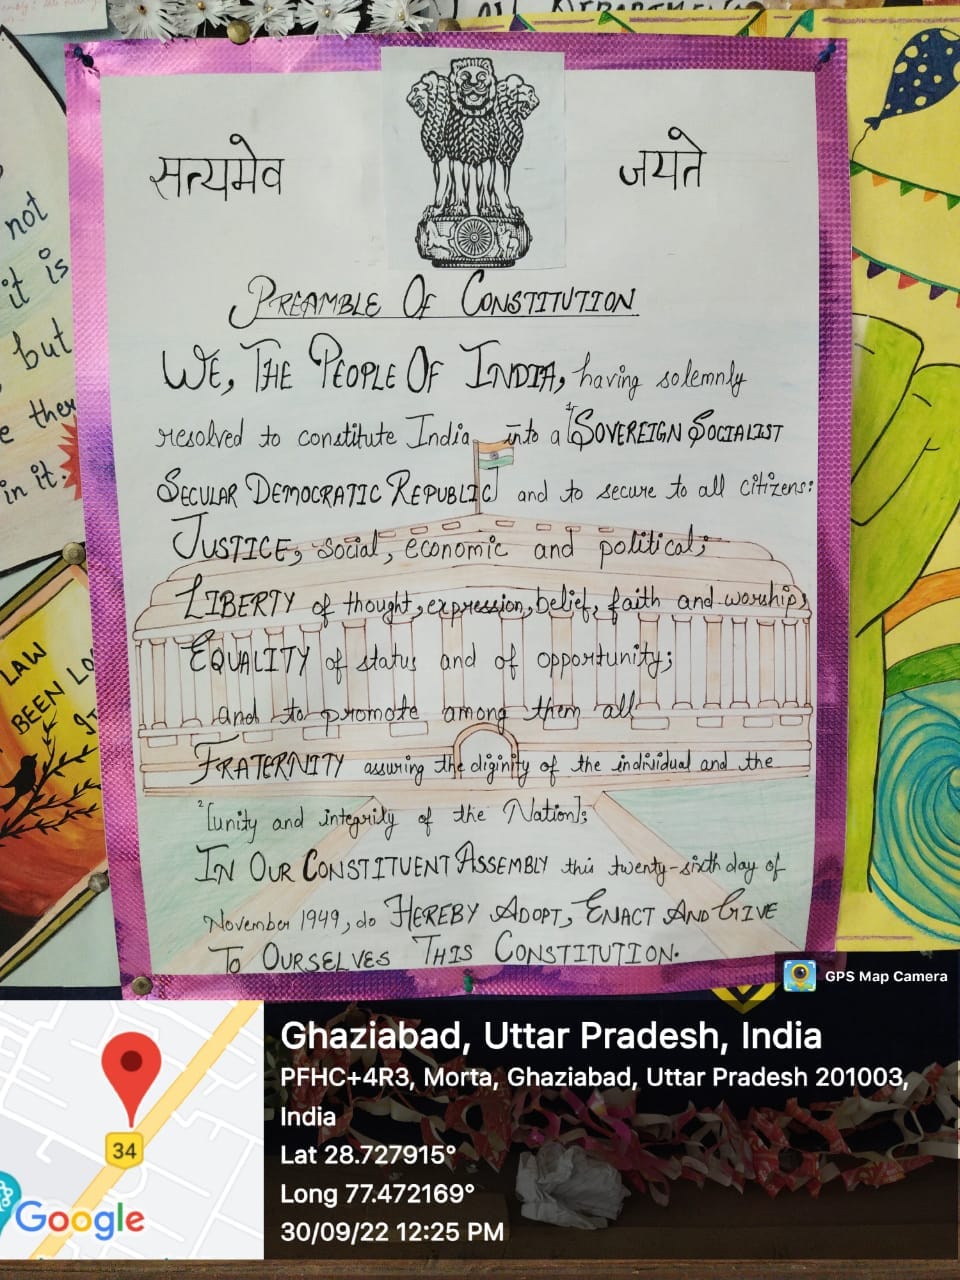 DEPARTMENT
not
it is
but
there
in it.
LAW
BEEN
सत्यमेव जयते
PREAMBLE OF CONSTITUTION
WE, THE PEOPLE OF INDIA, having solemnly
resolved to constitute India into a ¹[SOVEREIGN SOCIALIST
SECULAR DEMOCRATIC REPUBLIC] and to secure to all citizens:
JUSTICE, social, economic and political;
LIBERTY of thought, expression, belief, faith and worship;
EQUALITY of status and of opportunity;
and to promote among them all
FRATERNITY assuring the diginity of the individual and the
²[unity and integrity of the Nation];
IN OUR CONSTITUENT ASSEMBLY this twenty-sixth day of
November 1949, do HEREBY ADOPT, ENACT AND GIVE
TO OURSELVES THIS CONSTITUTION.
GPS Map Camera
34
Google
Ghaziabad, Uttar Pradesh, India
PFHC+4R3, Morta, Ghaziabad, Uttar Pradesh 201003,
India
Lat 28.727915°
Long 77.472169°
30/09/22 12:25 PM